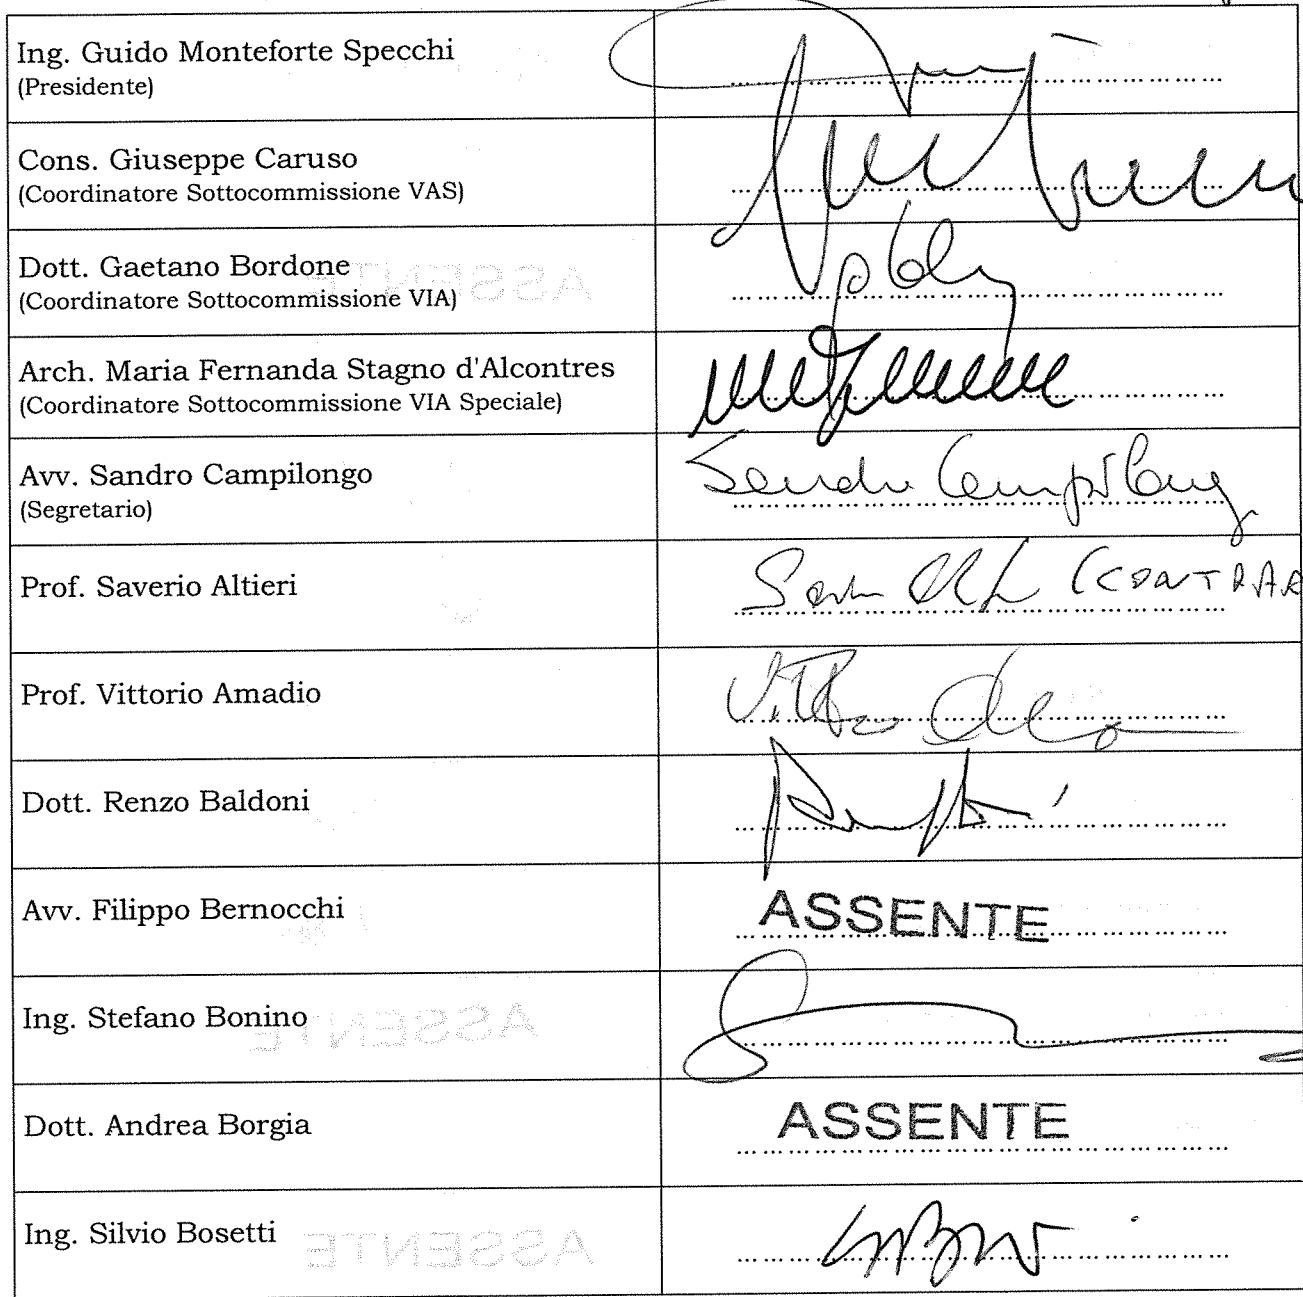 Ing. Guido Monteforte Specchi
(Presidente)
Cons. Giuseppe Caruso
(Coordinatore Sottocommissione VAS)
Dott. Gaetano Bordone
(Coordinatore Sottocommissione VIA)
ASSENTE
Arch. Maria Fernanda Stagno d'Alcontres
(Coordinatore Sottocommissione VIA Speciale)
Avv. Sandro Campilongo
(Segretario)
Sandro Campilongo
Prof. Saverio Altieri
(CONTRAR
Prof. Vittorio Amadio
Dott. Renzo Baldoni
Avv. Filippo Bernocchi
ASSENTE
Ing. Stefano Bonino
ASSENTE
Dott. Andrea Borgia
ASSENTE
Ing. Silvio Bosetti
ASSENTE